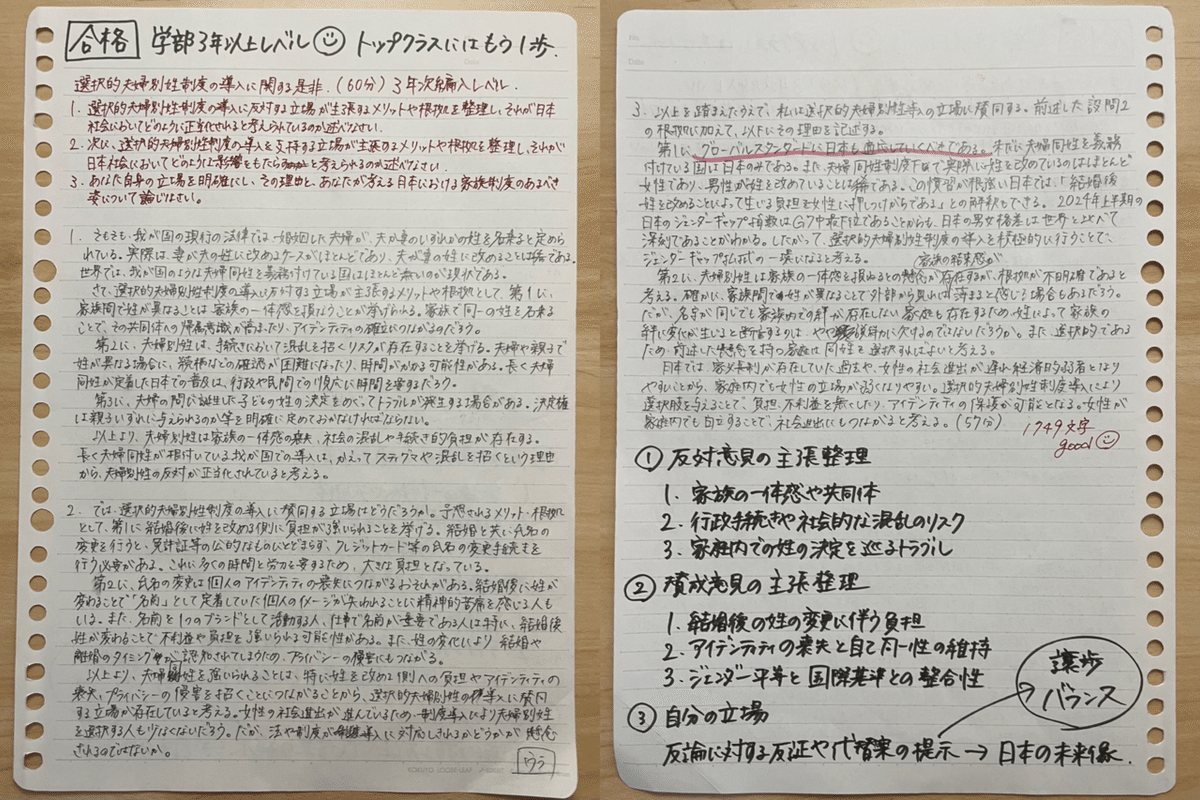 合格 学部3年以上レベル トップクラスにはもう1歩.
選択的夫婦別姓制度の導入に関する是非.(60分) 3年次編入レベル.
1. 選択的夫婦別姓制度の導入に反対する立場が主張するメリットや根拠を整理し、それが日本
社会においてどのように正当化されると考えられているのか述べなさい.
2. 次に、選択的夫婦別姓制度の導入を支持する立場が主張するメリットや根拠を整理し、それが
日本社会においてどのような影響をもたらすと考えられるのか述べなさい
3. あなた自身の立場を明確にし、その理由と、あなたが考える日本における家族制度のあるべき
姿について論じなさい。
1. そもそも、我が国の現行の法律では、婚姻した夫婦が、夫か妻のいずれかの姓を名乗ると定めら
れている。実際は、妻が夫の姓に改めるケースがほとんどであり、夫が妻の姓に改めることは稀である。
世界では、我が国のような夫婦同姓を義務付けている国はほとんど無いのが現状である。
さて、選択的夫婦別姓制度の導入に反対する立場が主張するメリットや根拠として、第1に、
家族間で姓が異なることは家族の一体感を損なうことが挙げられる。家族で同一の姓を名乗る
ことで、その共同体への帰属意識が高まったり、アイデンティティの確立につながるのだろう。
第2に、夫婦別姓は、手続きにおいて混乱を招くリスクが存在することを挙げる。夫婦や親子で
姓が異なる場合に、続柄などの確認が困難になったり、時間がかかる可能性がある。長く夫婦
同姓が定着した日本での普及は、行政や民間での順応に時間を要するだろう。
第3に、夫婦の間に誕生した子どもの姓の決定をめぐってトラブルが発生する場合がある。決定権
は親子いずれに与えられるのか等を明確に定めておかなければならない。
以上より、夫婦別姓は家族の一体感の喪失、社会の混乱や手続き的負担が存在する。
長く夫婦同姓が根付いている我が国での導入は、かえってスティグマや混乱を招くという理由
から、夫婦別姓の反対が正当化されていると考える。
2. では、選択的夫婦別姓制度の導入に賛同する立場はどうだろうか。予想されるメリット・根拠
として、第1に結婚後に姓を改める側に負担が強いられることを挙げる。結婚と共に氏名の
変更を行うと、免許証等の公的なものにとどまらず、クレジットカード等の氏名の変更手続きを
行う必要がある。これに多くの時間と労力を要するため、大きな負担となっている。
第2に、氏名の変更は個人のアイデンティティの喪失につながるおそれがある。結婚後に姓が
変わることで"名前"として定着していた個人のイメージが失われることに精神的苦痛を感じる人も
いる。また、名前を1つのブランドとして活動する人、仕事で名前が重要である人は特に、結婚後
姓が変わることで不利益や負担を強いられる可能性がある。また、姓の変化により結婚や
離婚のタイミングが認知されてしまうため、プライバシーの侵害にもつながる。
以上より、夫婦同姓を強いられることは、特に姓を改める側への負担やアイデンティティの
喪失、プライバシーの侵害を招くことにつながることから、選択的夫婦別姓の導入に賛同
する立場が存在していると考える。女性の社会進出が進んでいるため、制度導入により夫婦別姓
を選択する人も少なくないだろう。だが、法や制度が導入に対応しきれるかどうかが懸念
されるのではないか。
ウラ
3. 以上を踏まえたうえで、私は選択的夫婦別姓導入の立場に賛同する。前述した設問2
の根拠に加えて、以下にその理由を記述する。
第1に、グローバルスタンダードに日本も適応していくべきである。未だに夫婦同姓を義務
付けている国は日本のみである。また、夫婦同姓制度下で実際に姓を改めているのはほとんど
女性であり、男性が姓を改めていることは稀である。この慣習が根強い日本では、「結婚後
姓を改めることによって生じる負担を女性に押しつけがちである」との解釈もできる。2024年上半期の
日本のジェンダーギャップ指数はG7中最下位であることからも、日本の男女格差は世界と比べて
深刻であることがわかる。したがって、選択的夫婦別姓制度の導入を積極的に行うことで、
ジェンダーギャップ払拭の一環になると考える。
第2に、夫婦別姓は家族の一体感を損ねるとの懸念が存在するが、根拠が不明確であると
考える。確かに、家族間で姓が異なることで外部から見れば家族の結束感が薄まると感じる場合もあるだろう。
だが、名字が同じでも家族内での絆が存在しない家庭も存在するため姓によって家族の
絆に変化が生じると断言するのは、やや説得力に欠けるのではないだろうか。また、選択的である
ため、前述した懸念を持つ家庭は同姓を選択すればよいと考える。
日本では、家父長制が存在していた過去や、女性の社会進出が遅れ経済的弱者となり
やすいことから、家庭内でも女性の立場が弱くなりやすい。選択的夫婦別姓制度導入により
選択肢を与えることで、負担、不利益を無くしたり、アイデンティティの保護が可能となる。女性が
家庭内でも自立することで、社会進出にもつながると考える。(57分)
1749文字
good
① 反対意見の主張整理
1. 家族の一体感や共同体
2. 行政手続きや社会的な混乱のリスク
3. 家庭内での姓の決定を巡るトラブル
② 賛成意見の主張整理
1. 結婚後の姓の変更に伴う負担
2. アイデンティティの喪失と自己同一性の維持
3. ジェンダー平等と国際基準との整合性
③ 自分の立場
反論に対する反証や代替案の提示 → 日本の未来像.
譲歩
バランス